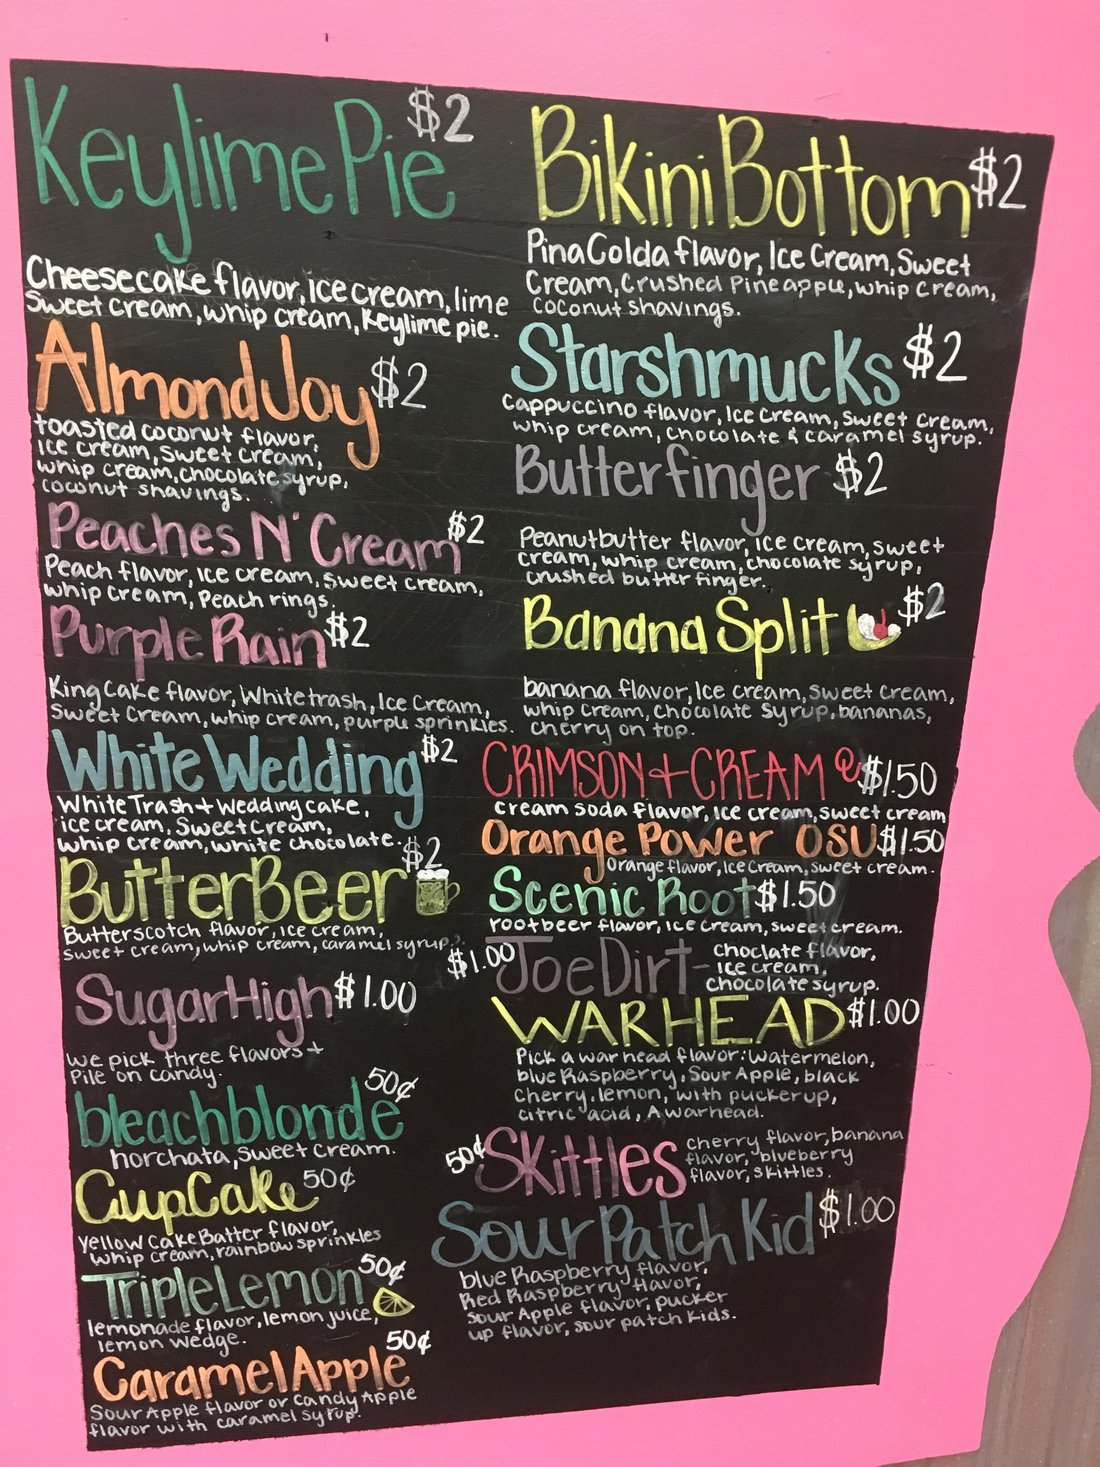 Keylime Pie $2
Cheesecake flavor, ice cream, lime
Sweet cream, whip cream, Keylime pie.
Almond Joy $2
toasted coconut flavor,
Ice cream, sweet cream,
whip cream, chocolate syrup,
coconut shavings.
Peaches N' Cream $2
Peach flavor, Ice cream, sweet cream,
whip cream, Peach rings.
Purple Rain $2
King Cake flavor, White trash, Ice Cream,
Sweet Cream, whip cream, purple sprinkles.
White Wedding $2
White Trash + Wedding cake,
ice cream, Sweet Cream,
whip cream, white chocolate.
ButterBeer $2
Butterscotch flavor, ice cream,
sweet cream, whip cream, caramel syrup.
Sugar High $1.00
we pick three flavors +
Pile on candy.
bleachblonde 50¢
horchata, sweet cream.
CupCake 50¢
Yellow CakeBatter flavor,
whip cream, rainbow sprinkles
Triple Lemon 50¢
lemonade flavor, lemon juice,
lemon wedge.
Caramel Apple 50¢
Sour Apple flavor or Candy Apple
flavor with caramel syrup.
Bikini Bottom $2
Pina Colda flavor, Ice Cream, Sweet
Cream, Crushed Pineapple, whip cream,
coconut shavings.
Starshmucks $2
Cappuccino flavor, Ice Cream, sweet cream,
whip cream, chocolate & caramel syrup.
Butterfinger $2
Peanutbutter flavor, ice cream, sweet
cream, whip cream, chocolate syrup,
crushed butterfinger.
Banana Split $2
banana flavor, Ice cream, sweet cream,
whip cream, Chocolate Syrup, bananas,
cherry on top.
CRIMSON + CREAM $1.50
cream soda flavor, ice cream, sweet cream
Orange Power OSU $1.50
Orange flavor, Ice Cream, sweet cream.
Scenic Root $1.50
rootbeer flavor, Ice cream, sweet cream.
$1.00 Joe Dirt - choclate flavor,
Ice cream,
chocolate syrup.
WARHEAD $1.00
Pick a war head flavor: Watermelon,
blue Raspberry, Sour Apple, black
Cherry, lemon, with pucker up,
citric acid, A warhead.
50¢ Skittles cherry flavor, banana
flavor, blueberry
flavor, skittles.
Sour Patch Kid $1.00
blue Raspberry flavor,
Red Raspberry flavor,
Sour Apple flavor, pucker
up flavor, sour patch kids.